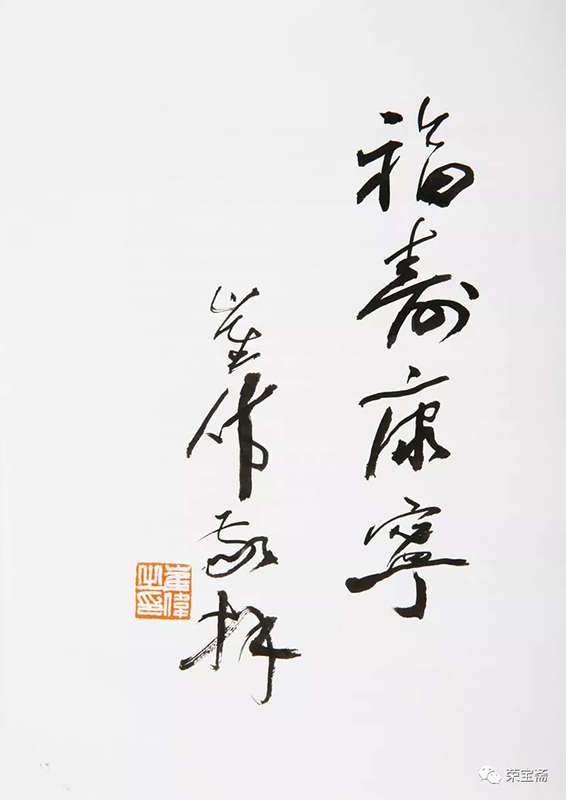 福寿康寧
崔伟敬拜
崔偉之印
荣宝斋